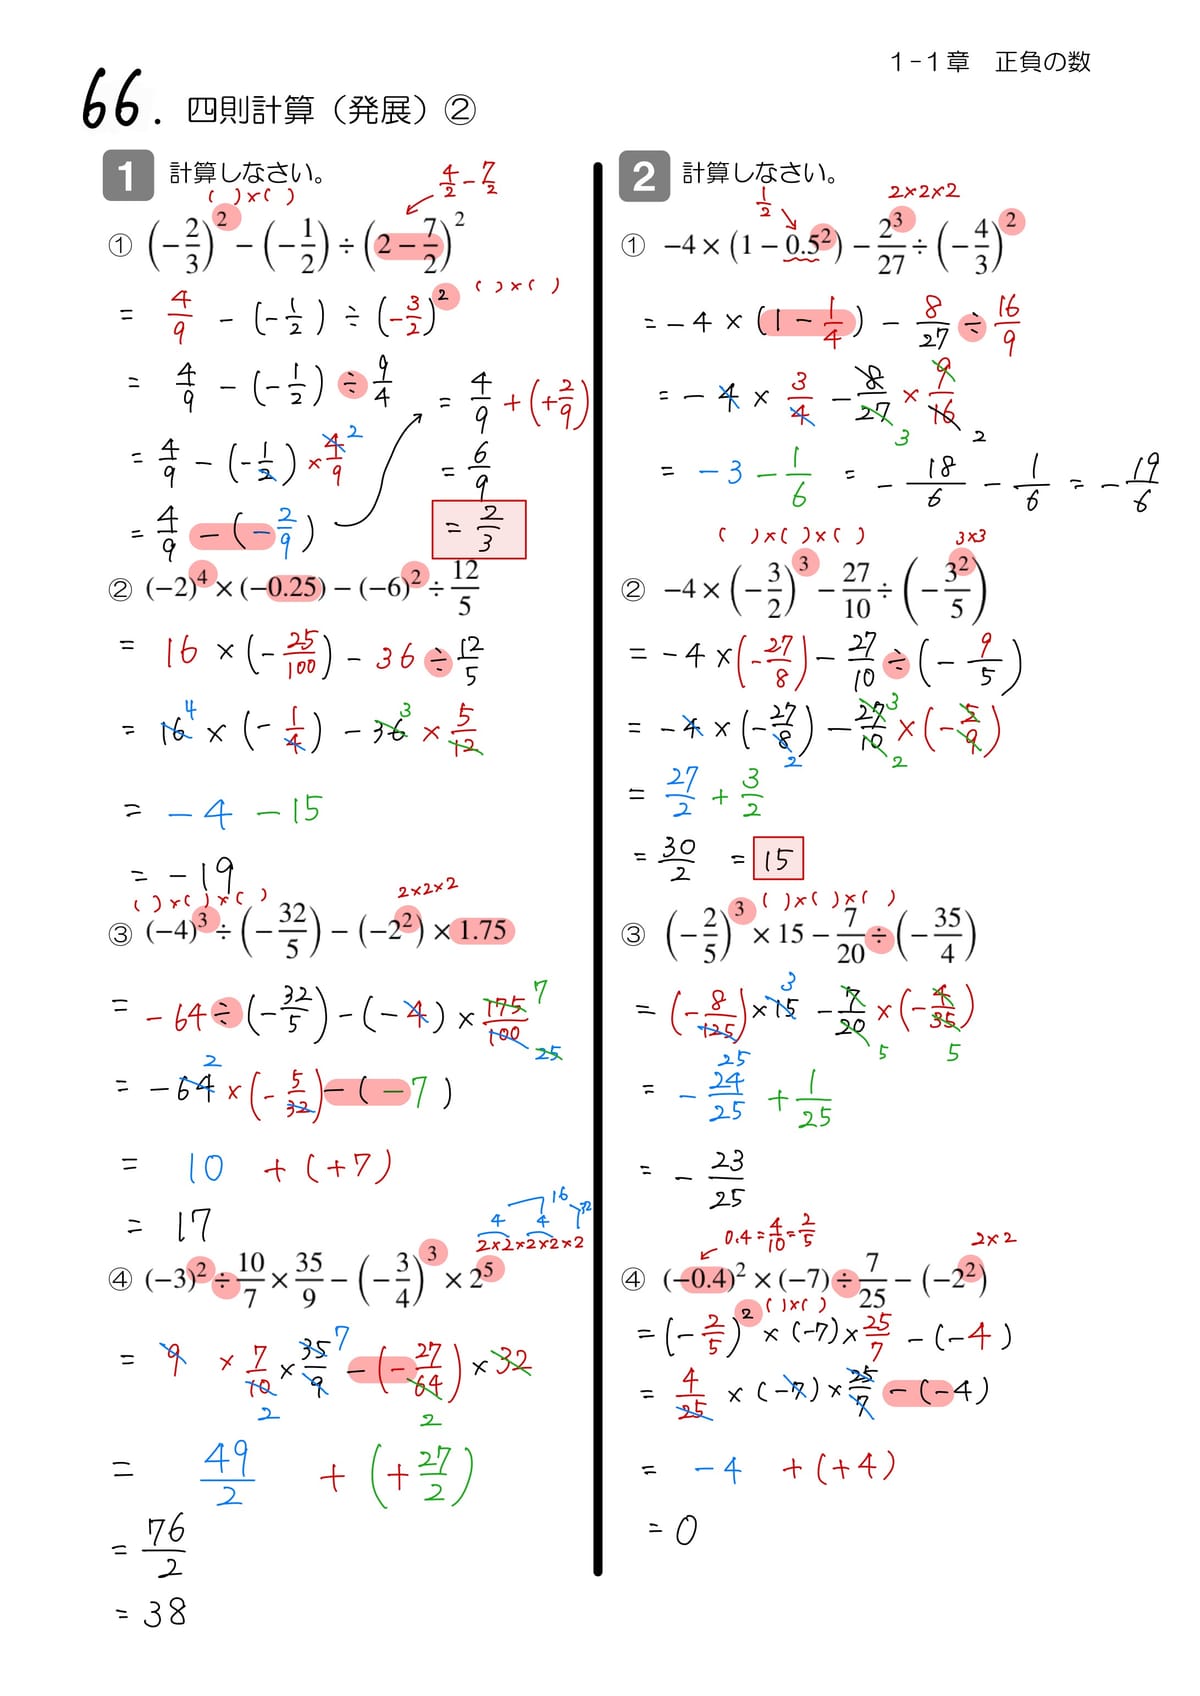 1-1章　正負の数
66. 四則計算（発展）②
1 計算しなさい。
( )×( )
4/2 - 7/2
① (-2/3)^2 - (-1/2) ÷ (2 - 7/2)^2
( )×( )
= 4/9 - (-1/2) ÷ (-3/2)^2
= 4/9 - (-1/2) ÷ 9/4
= 4/9 - (-1/2) × 4/9 2
= 4/9 - (-2/9)
= 4/9 + (+2/9)
= 6/9
= 2/3
② (-2)^4 × (-0.25) - (-6)^2 ÷ 12/5
= 16 × (-25/100) - 36 ÷ 12/5
= 16 4 × (-1/4) - 36 3 × 5/12
= -4 - 15
= -19
( )×( )×( )
2×2×2
③ (-4)^3 ÷ (-32/5) - (-2^2) × 1.75
= -64 ÷ (-32/5) - (-4) × 175/100 7 25
= -64 2 × (-5/32) - (-7)
= 10 + (+7)
= 17
16
4 4
2×2×2×2×2
④ (-3)^2 ÷ 10/7 × 35/9 - (-3/4)^3 × 2^5
= 9 × 7/10 × 35/9 - (-27/64) × 32 7 2 2
= 49/2 + (+27/2)
= 76/2
= 38
2 計算しなさい。
1/2
2×2×2
① -4 × (1 - 0.5^2) - 2^3/27 ÷ (-4/3)^2
= -4 × (1 - 1/4) - 8/27 ÷ 16/9
= -4 × 3/4 - 8/27 × 9/16 3 2
= -3 - 1/6 = -18/6 - 1/6 = -19/6
( )×( )×( )
3×3
② -4 × (-3/2)^3 - 27/10 ÷ (-3^2/5)
= -4 × (-27/8) - 27/10 ÷ (-9/5)
= -4 × (-27/8) - 27/10 × (-5/9) 2 3 2
= 27/2 + 3/2
= 30/2 = 15
( )×( )×( )
③ (-2/5)^3 × 15 - 7/20 ÷ (-35/4)
= (-8/125) × 15 - 7/20 × (-4/35) 3 25 5 5
= -24/25 + 1/25
= -23/25
0.4 = 4/10 = 2/5
2×2
④ (-0.4)^2 × (-7) ÷ 7/25 - (-2^2)
( )×( )
= (-2/5)^2 × (-7) × 25/7 - (-4)
= 4/25 × (-7) × 25/7 - (-4)
= -4 + (+4)
= 0